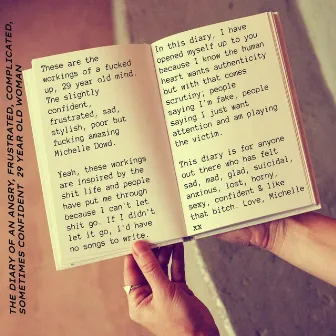 THE DIARY OF AN ANGRY, FRUSTRATED, COMPLICATED,
SOMETIMES CONFIDENT 29 YEAR OLD WOMAN
These are the
workings of a fucked
up, 29 year old mind.
The slightly
confident,
frustrated, sad,
stylish, poor but
fucking amazing
Michelle Dowd.
Yeah, these workings
are inspired by the
shit life and people
have put me through
because I can't let
shit go. If I didn't
let it go, I'd have
no songs to write.
In this diary, I have
opened myself up to you
because I know the human
heart wants authenticity
but with that comes
scrutiny; people
saying I'm fake, people
saying I just want
attention and am playing
the victim.
This diary is for anyone
out there who has felt
sad, mad, glad, suicidal,
anxious, lost, horny,
sexy, confident & like
that bitch. Love, Michelle
xx